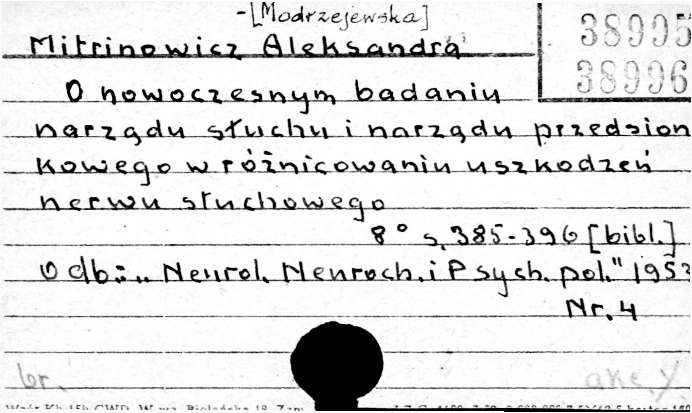 -[Modrzejewska]
Mitrinowicz Aleksandra
38995
38996
O nowoczesnym badaniu
narządu słuchu i narządu przedsion
kowego w różnicowaniu uszkodzeń
nerwu słuchowego
8° s. 385-396 [bibl.]
Odb.: „Neurol. Neuroch. i Psych. pol." 195
Nr. 4
br.
akc. Y